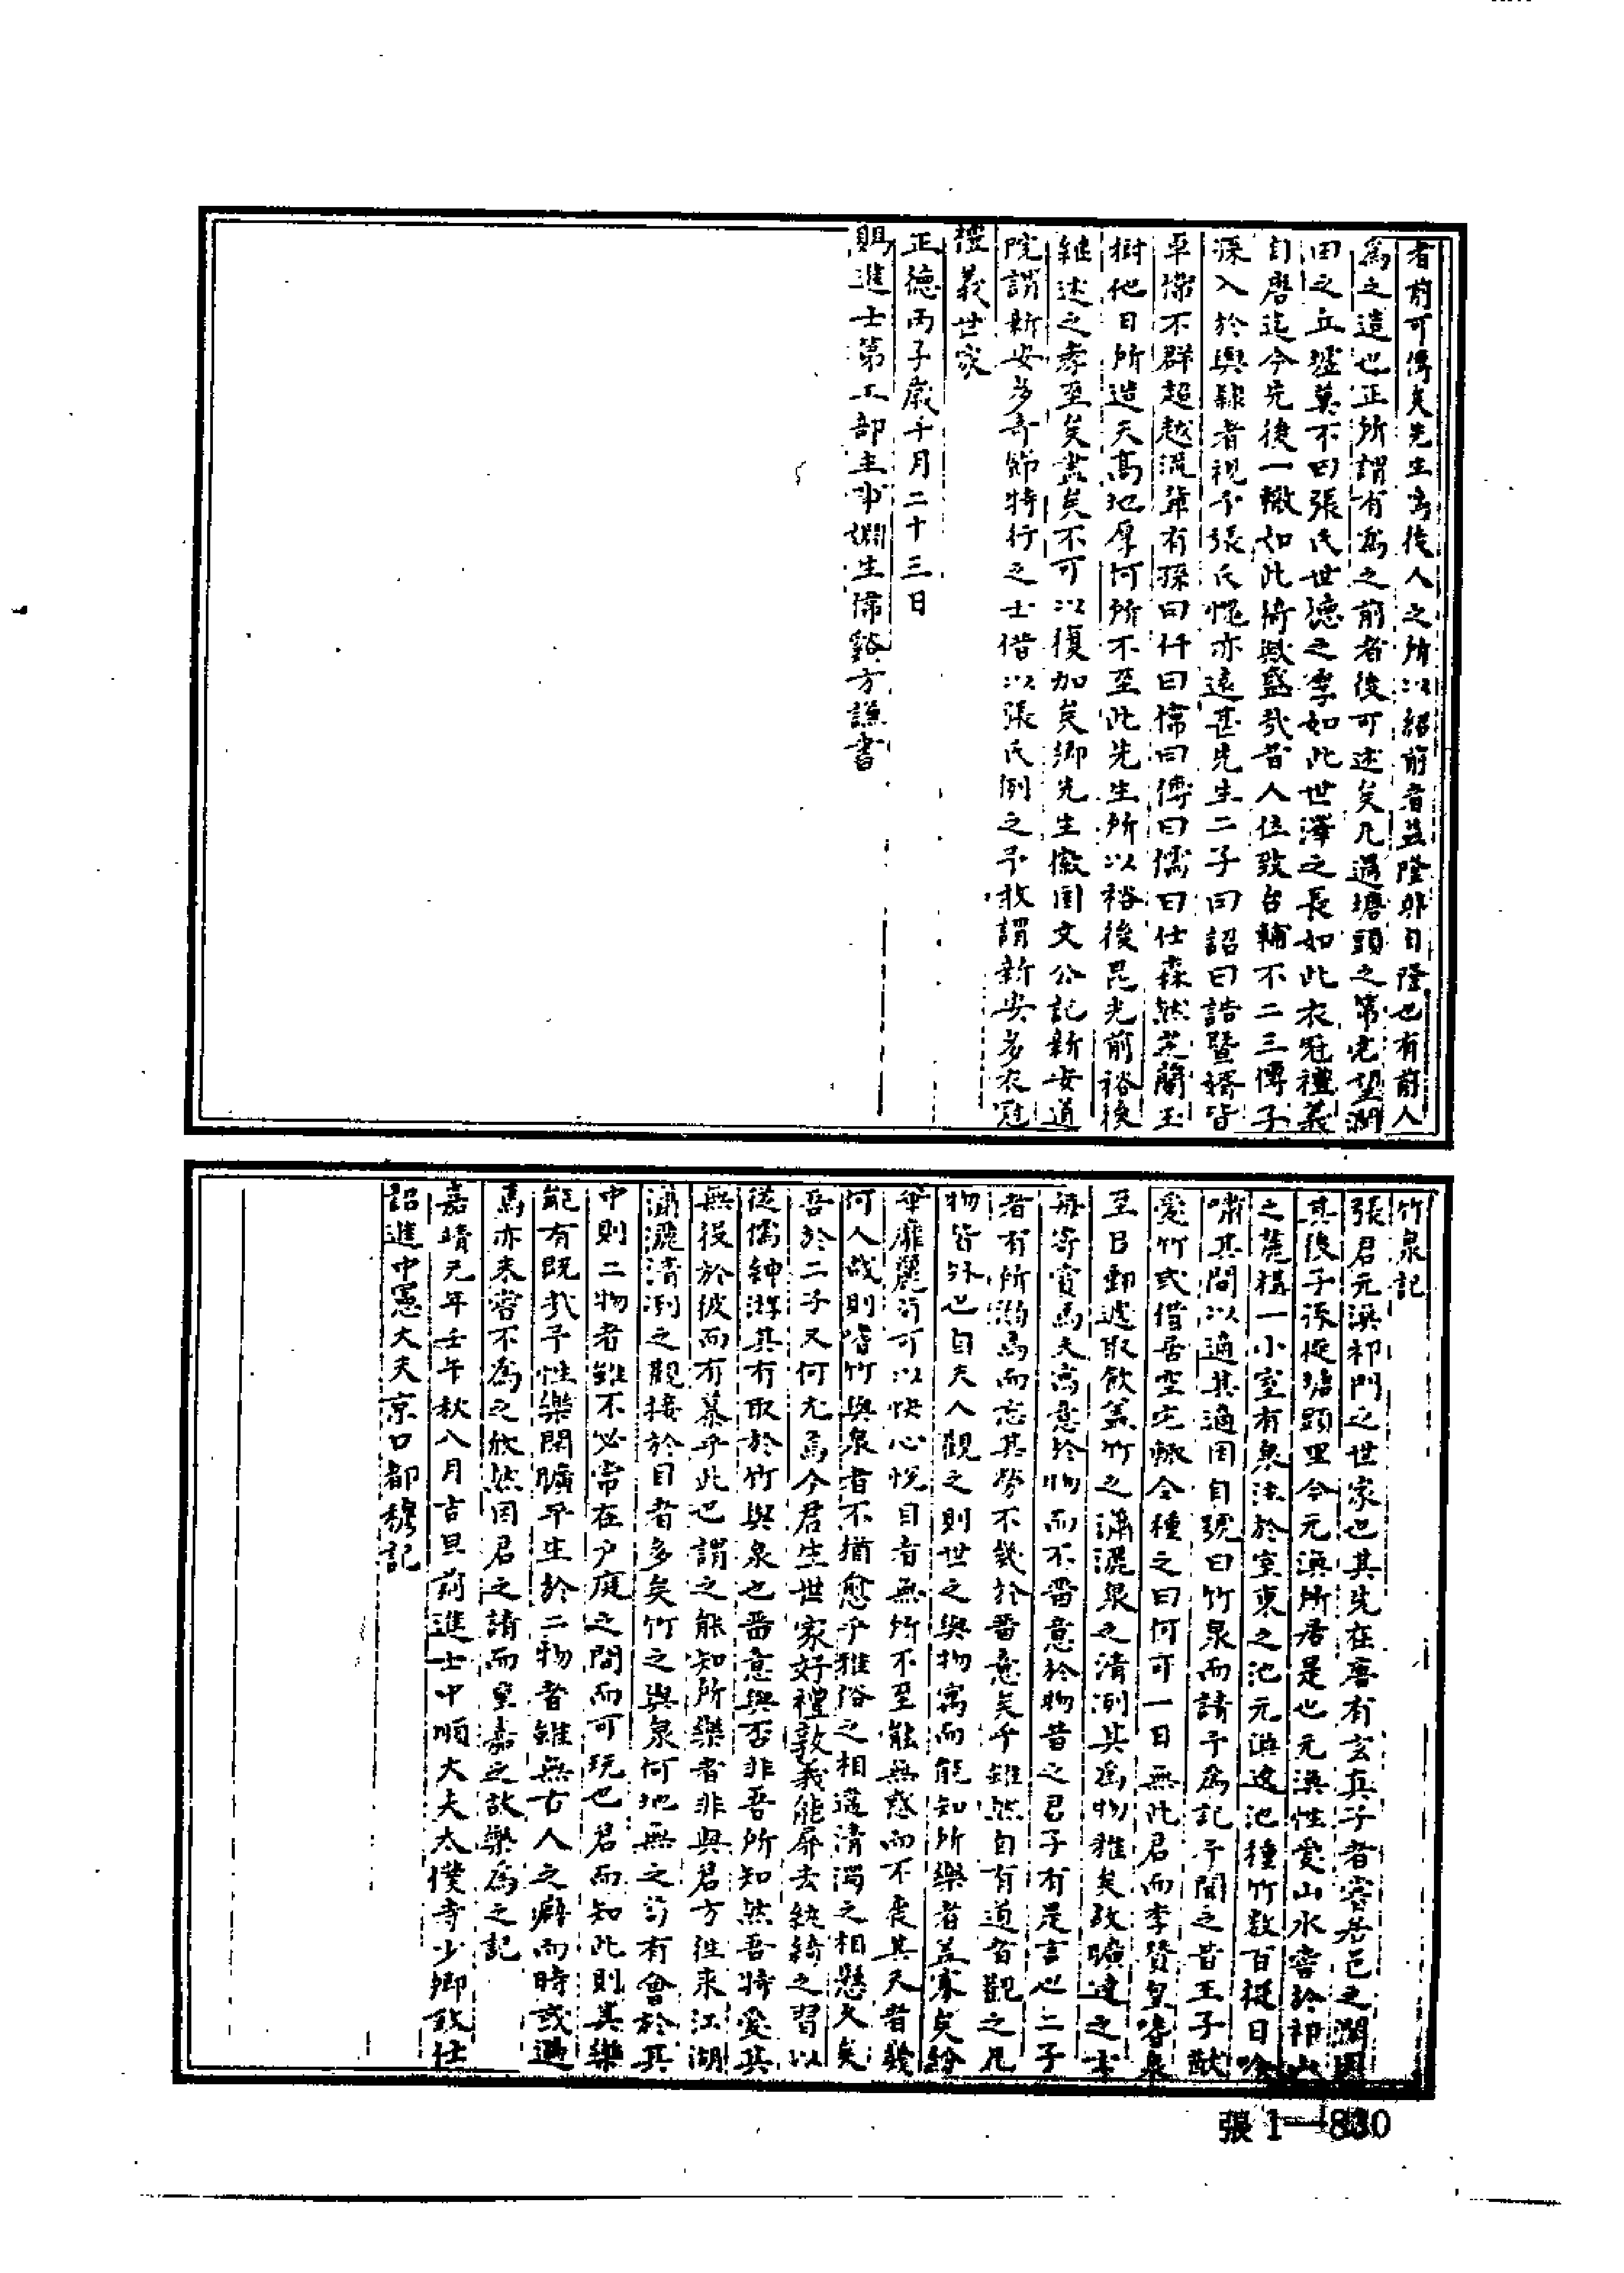 者前可傳矣先生為後人之所以紹前者益隆非自隆也有前人
為之遺也正所謂有為之前者後可述矣凡過塘頭之第宅望澗
田之丘壠莫不曰張氏世德之厚如此世澤之長如此衣冠禮義
自唐迄今先後一轍如此猗歟盛哉昔人位致台輔不二三傳子
孫入於輿隸者視乎張氏愧亦遠甚先生二子曰詔曰誥暨婿皆
卓犖不群超越流輩有孫曰仟曰儒曰傅曰儒曰仕森然芝蘭玉
樹他日所造天高地厚何所不至此先生所以裕後昆光前裕後
繼述之孝至矣盡矣不可以復加矣鄉先生徽國文公記新安道
院謂新安多奇節特行之士借以張氏例之予敢謂新安多衣冠
禮義世家
正德丙子歲十月二十三日
賜進士第工部主事澗生儒谿方謙書
竹泉記
張君元淇祁門之世家也其先在唐有玄真子者嘗居邑之潤田
其後子孫從塘頭里今元淇所居是也元淇性愛山水嘗於祁山
之麓構一小室有泉注於室東之池元淇遶池種竹數百挺日吟
嘯其間以適其適因自號曰竹泉而請予為記予聞之昔王子猷
愛竹或借居空宅輒令種之曰何可一日無此君而李贊皇嗜泉
至日郵遞取飲蓋竹之瀟灑泉之清洌其為物雅矣故曠達之士
每寄賞焉夫寓意於物而不留意於物昔之君子有是言也二子
者有所溺焉而忘其勞不幾於留意矣乎雖然自有道者觀之凡
物皆外也自夫人觀之則世之與物寓而能知所樂者蓋寡矣紛
華靡麗苟可以快心悅目者無所不至能無惑而不喪其天者幾
何人哉則嗜竹與泉者不猶愈乎雅俗之相遠清濁之相懸久矣
吾於二子又何尤焉今君生世家好禮敦義能屏去紈綺之習以
從儒紳游其有取於竹與泉也留意與否非吾所知然吾特愛其
無役於彼而有慕乎此也謂之能知所樂者非與君方往來江湖
瀟灑清洌之觀接於目者多矣竹之與泉何地無之苟有會於其
中則二物者雖不必常在戶庭之間而可玩也君而知此則其樂
能有既哉予性樂閒曠平生於二物者雖無古人之癖而時或遇
焉亦未嘗不為之欣然因君之請而重嘉之故樂為之記
嘉靖元年壬午秋八月吉旦前進士中順大夫太僕寺少卿致仕
詔進中憲大夫京口都穆記
張1—830